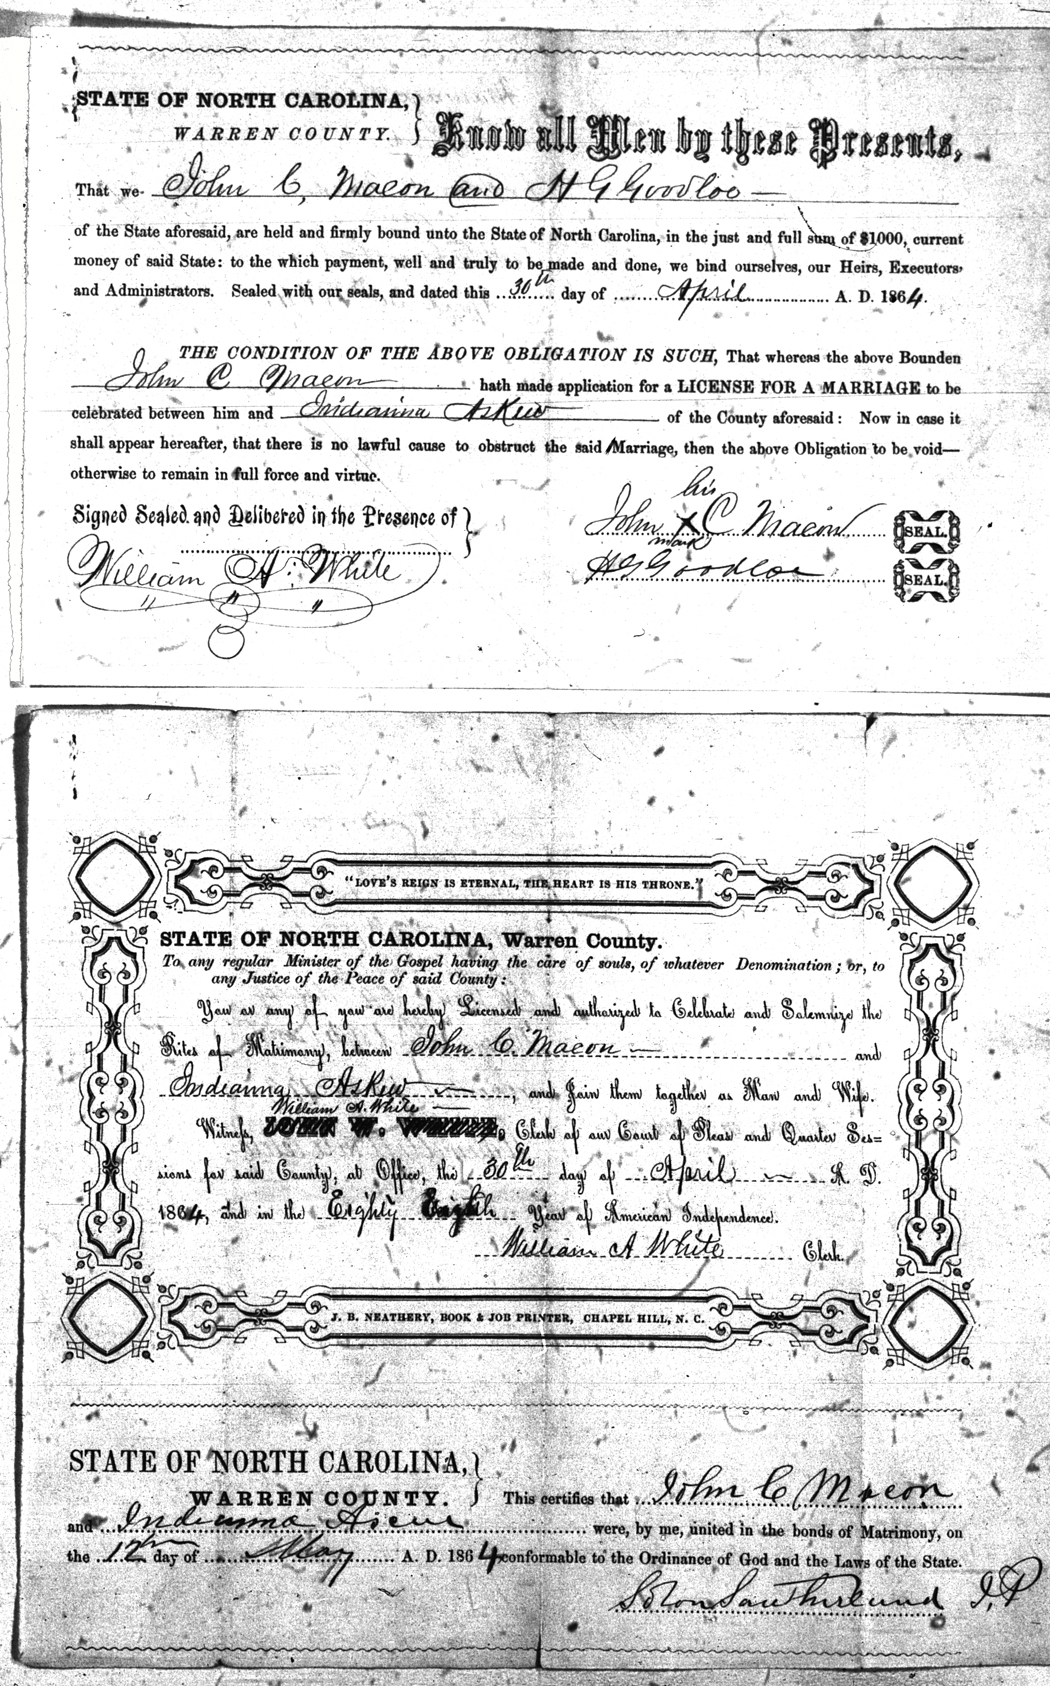 STATE OF NORTH CAROLINA,
WARREN COUNTY.
Know all Men by these Presents,
That we John C, Macon and H G Goodloe
of the State aforesaid, are held and firmly bound unto the State of North Carolina, in the just and full sum of $1000, current
money of said State: to the which payment, well and truly to be made and done, we bind ourselves, our Heirs, Executors,
and Administrators. Sealed with our seals, and dated this 30th day of April A. D. 1864.
THE CONDITION OF THE ABOVE OBLIGATION IS SUCH, That whereas the above Bounden
John C Macon hath made application for a LICENSE FOR A MARRIAGE to be
celebrated between him and Indianna Askew of the County aforesaid: Now in case it
shall appear hereafter, that there is no lawful cause to obstruct the said Marriage, then the above Obligation to be void—
otherwise to remain in full force and virtue.
Signed Sealed and Delibered in the Presence of
William A. White
his
John X C Macon SEAL.
mark
H G Goodloe SEAL.
"LOVE'S REIGN IS ETERNAL, THE HEART IS HIS THRONE."
STATE OF NORTH CAROLINA, Warren County.
To any regular Minister of the Gospel having the care of souls, of whatever Denomination; or, to
any Justice of the Peace of said County:
You or any of you are hereby Licensed and authorized to Celebrate and Solemnize the
Rites of Matrimony, between John C. Macon and
Indianna Askew, and Join them together as Man and Wife.
William A. White
Witness, Clerk of our Court of Pleas and Quarter Ses=
sions for said County, at Office, the 30th day of April A. D.
1864, and in the Eighty Eighth Year of American Independence.
William A White Clerk.
J. B. NEATHERY, BOOK & JOB PRINTER, CHAPEL HILL, N. C.
STATE OF NORTH CAROLINA,
WARREN COUNTY.
This certifies that John C Macon
and Indianna Ascue were, by me, united in the bonds of Matrimony, on
the 12th day of May A. D. 1864 conformable to the Ordinance of God and the Laws of the State.
Solon Southerland J, P